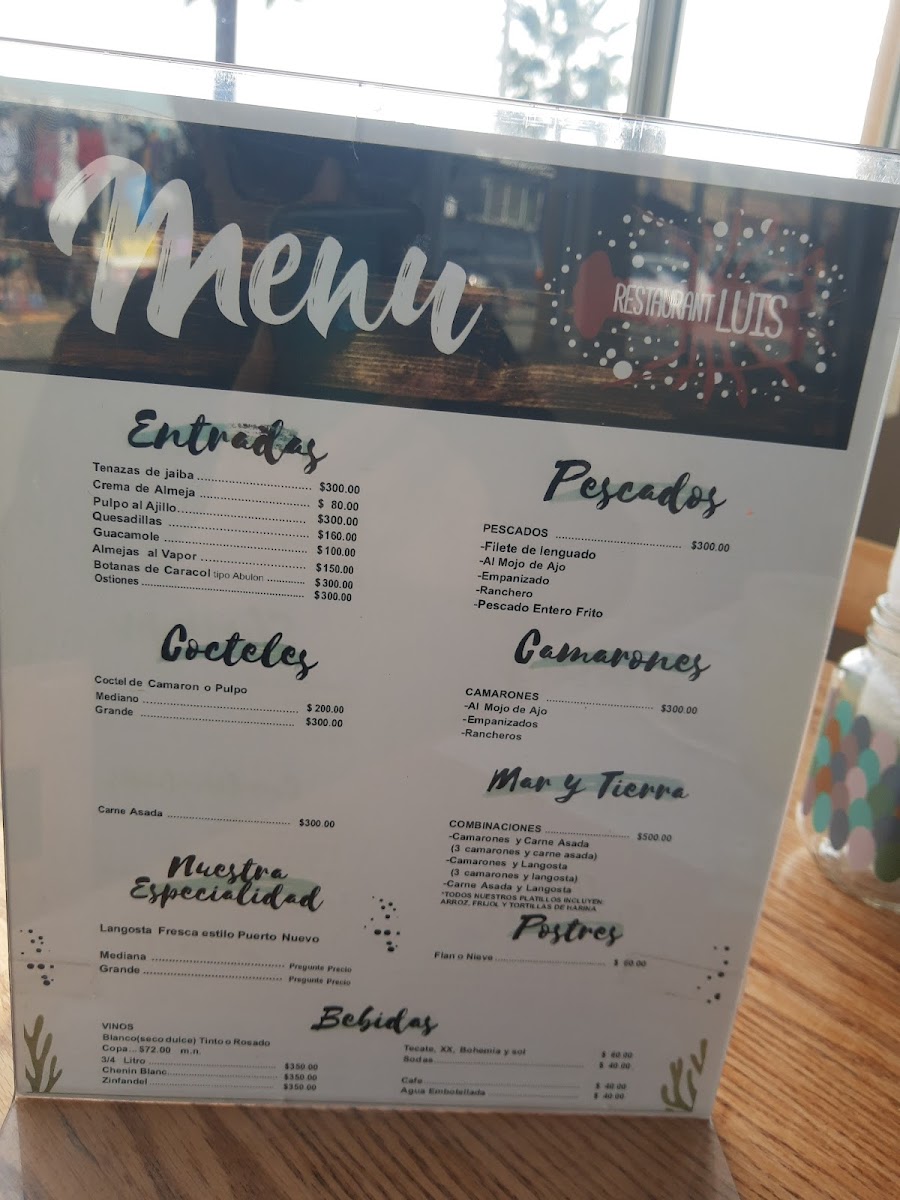 Menu
RESTAURANT LUIS
Entradas
Tenazas de jaiba ........ $300.00
Crema de Almeja ........ $ 80.00
Pulpo al Ajillo ........ $300.00
Quesadillas ........ $160.00
Guacamole ........ $100.00
Almejas al Vapor ........ $150.00
Botanas de Caracol tipo Abulon ........ $300.00
Ostiones ........ $300.00
Cocteles
Coctel de Camaron o Pulpo
Mediano ........ $ 200.00
Grande ........ $300.00
Carne Asada ........ $300.00
Nuestra
Especialidad
Langosta Fresca estilo Puerto Nuevo
Mediana ........ Pregunte Precio
Grande ........ Pregunte Precio
Pescados
PESCADOS ........ $300.00
-Filete de lenguado
-Al Mojo de Ajo
-Empanizado
-Ranchero
-Pescado Entero Frito
Camarones
CAMARONES ........ $300.00
-Al Mojo de Ajo
-Empanizados
-Rancheros
Mar y Tierra
COMBINACIONES ........ $500.00
-Camarones y Carne Asada
(3 camarones y carne asada)
-Camarones y Langosta
(3 camarones y langosta)
-Carne Asada y Langosta
*TODOS NUESTROS PLATILLOS INCLUYEN:
ARROZ, FRIJOL Y TORTILLAS DE HARINA
Postres
Flan o Nieve ........ $ 60.00
Bebidas
VINOS
Blanco(seco dulce) Tinto o Rosado
Copa... $72.00 m.n.
3/4 Litro ........ $350.00
Chenin Blanc ........ $350.00
Zinfandel ........ $350.00
Tecate, XX, Bohemia y sol ........ $ 60.00
Sodas ........ $ 40.00
Cafe ........ $ 40.00
Agua Embotellada ........ $ 40.00